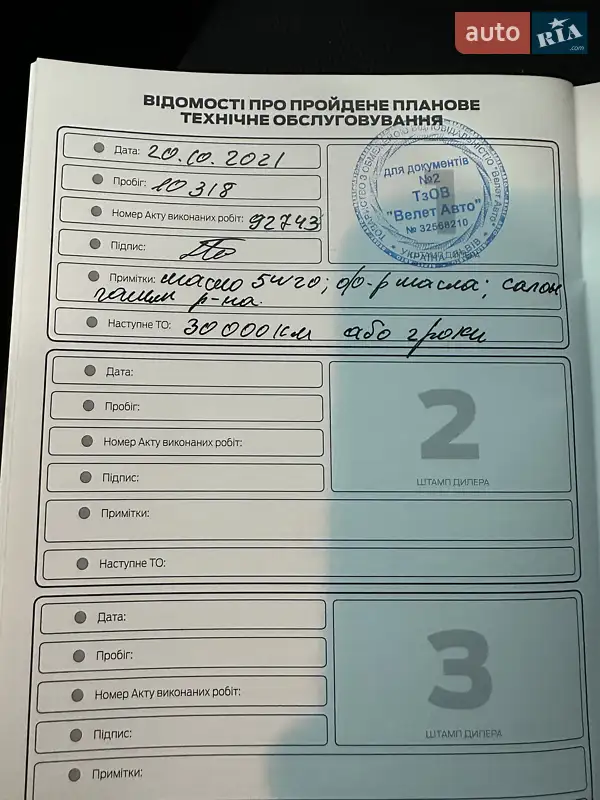 auto RIA .com
ВІДОМОСТІ ПРО ПРОЙДЕНЕ ПЛАНОВЕ
ТЕХНІЧНЕ ОБСЛУГОВУВАННЯ
Дата: 20.10.2021
Пробіг: 10318
Номер Акту виконаних робіт: 92743
Підпис:
для документів
№2
ТзОВ
"Велет Авто"
№ 32568210
УКРАЇНА ЛЬВІВ
Примітки: масло 5w20; ф-р масла; салон
р-на.
Наступне ТО: 30000км або 2 роки
Дата:
Пробіг:
Номер Акту виконаних робіт:
Підпис:
2
ШТАМП ДИЛЕРА
Примітки:
Наступне ТО:
Дата:
Пробіг:
Номер Акту виконаних робіт:
Підпис:
3
ШТАМП ДИЛЕРА
Примітки: